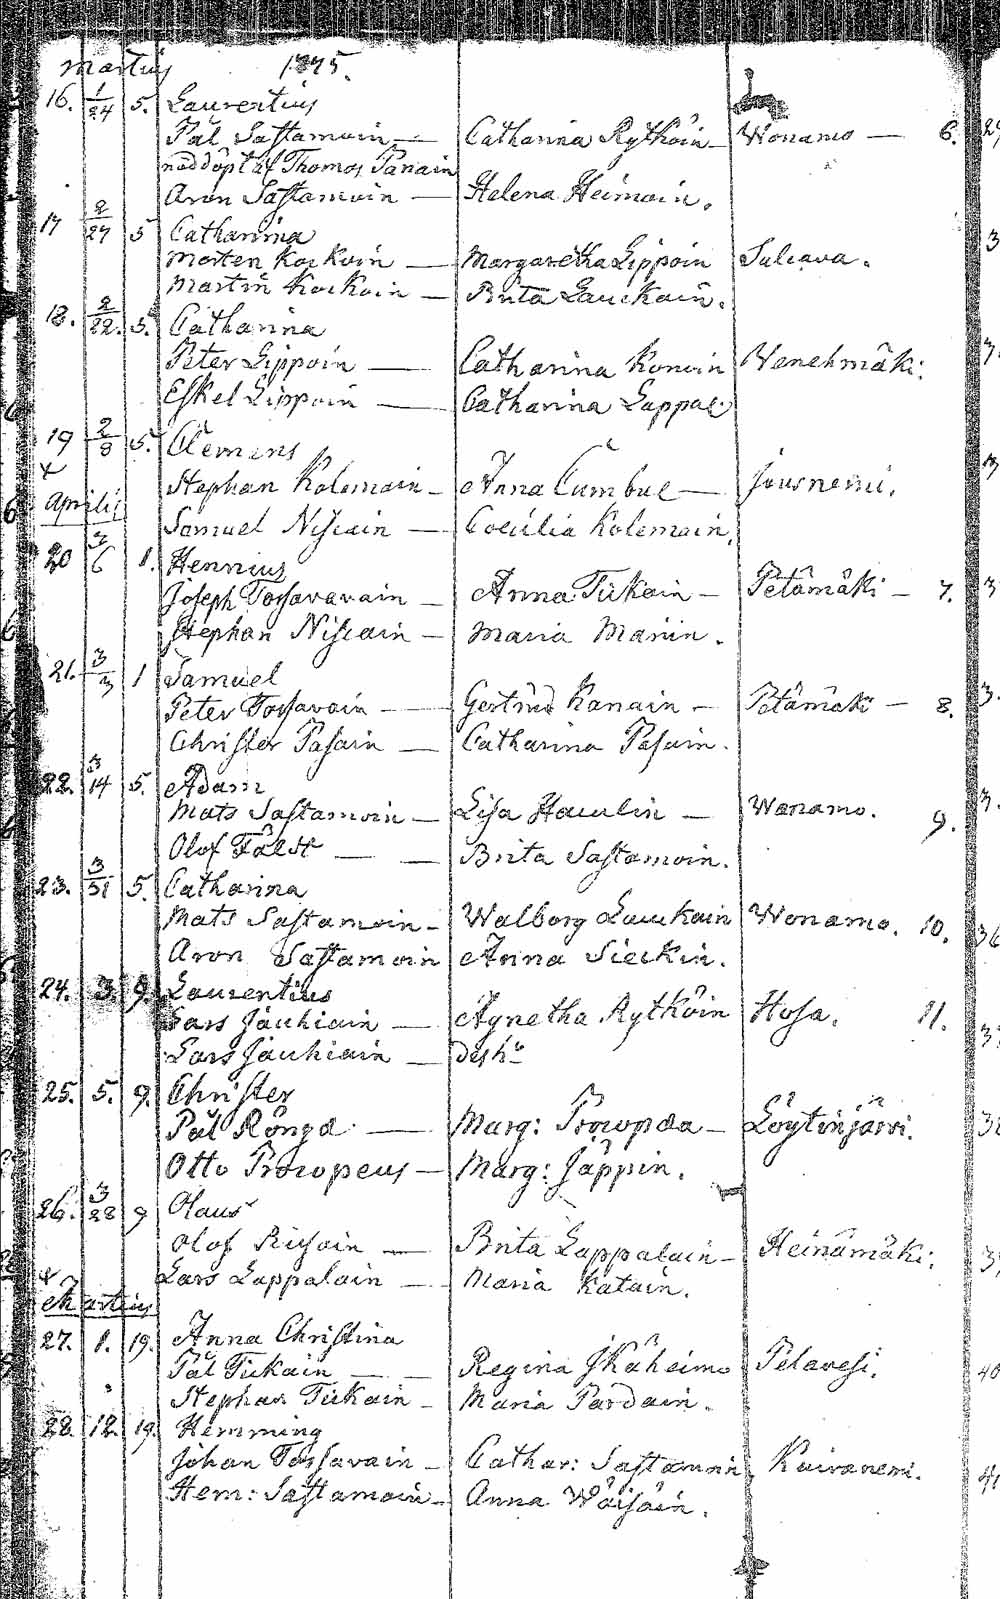 Martius 1775.
16. 1/24 5. Laurentius
Pål Sastamoin — Catharina Rytköin — Wonamo — 6.
nöddöpt af Thomos Panain
Aron Sastamoin — Helena Heimoin.
17 2/27 5 Catharina
Morten Koikoin — Margaretha Lippoin Saleava.
Martin Koikoin — Brita Lauckain.
18. 2/22. 5. Catharina
Peter Lippoin — Catharina Konoin Venehmäki.
Eskel Lippoin — Catharina Lappal.
19 2/8 5. Clemens
Stephan Kolemain — Anna Cumbul — Jousnemi.
Aprilis
Samuel Niscain — Coecilia Kolemain.
20 3/6 1. Hennius
Joseph Torsavavain — Anna Tikain — Petämäki — 7.
Stephan Niscain — Maria Maniin.
21. 3/3 1 Samuel
Peter Torsavain — Gertrud Kanain — Petämäki — 8.
Christer Pasain — Catharina Pasain.
22. 3/14 5. Adam
Mats Sastamoin — Lisa Haculin — Wanamo. 9.
Olof Fält — — Brita Sastamoin.
23. 3/31 5. Catharina
Mats Sastamoin — Walborg Lauckain Wonamo. 10.
Aron Sastamoin Anna Sieckin.
24. 3. 9. Laurentius
Lars Jäuhiain — Agnetha Rytköin Hosa. 11.
Lars Jäuhiain — desh:
25. 5. 9. Christer
Pål Röngä — Marg: Procopæa — Löytinjärvi.
Otto Procopeus — Marg: Jäppin.
26. 3/28 9 Olaus
Olof Ricsoin — Brita Lappalain — Heinämäki.
Lars Lappalain — Maria Katain.
Martius
27. 1. 19. Anna Christina
Pål Tickain — — Regina Ikäheimo Pelavesi.
Stephan Tickain — Maria Pardain.
28. 12. 19. Hemming
Johan Torsavain — Cathar: Sastamoin Kuivanemi.
Hem: Sastamoin — Anna Wäisäin.